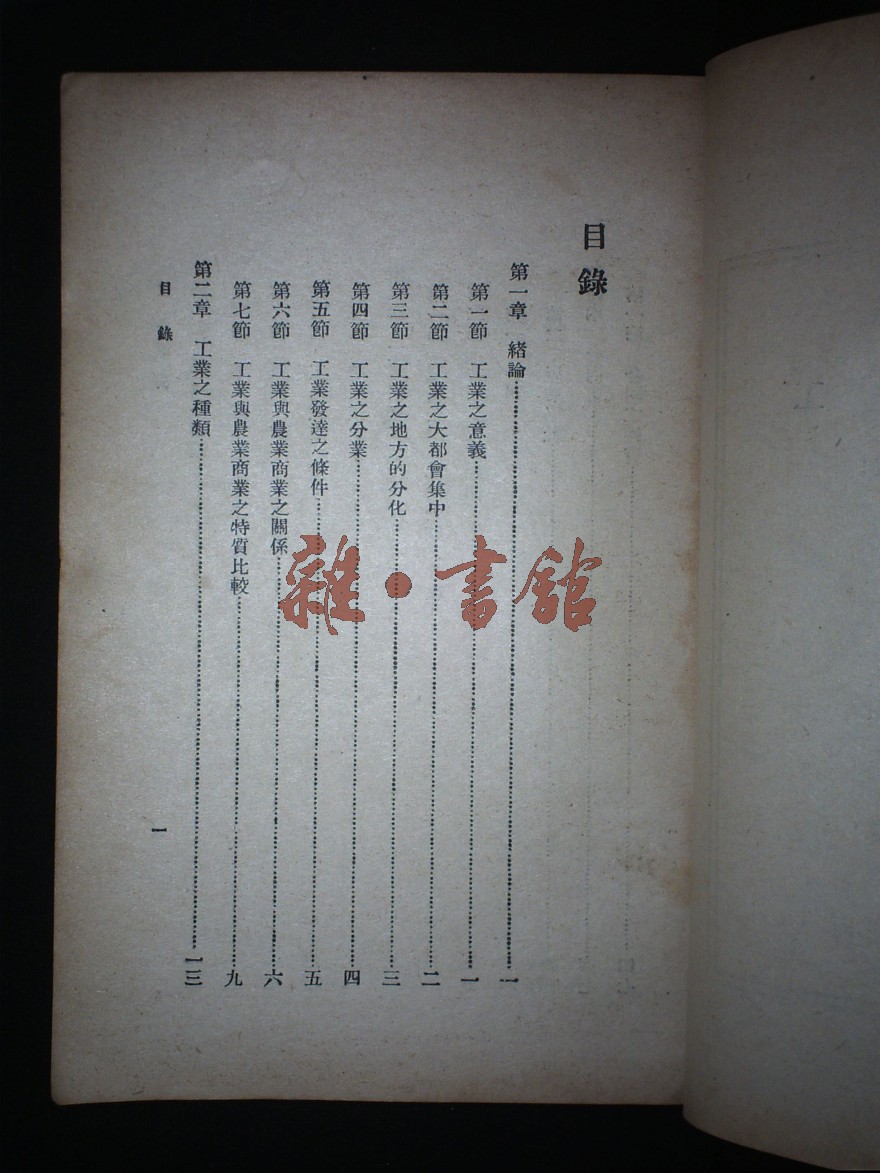 目錄
第一章　緒論……一
第一節　工業之意義……一
第二節　工業之大都會集中……二
第三節　工業之地方的分化……三
第四節　工業之分業……四
第五節　工業發達之條件……五
第六節　工業與農業商業之關係……六
第七節　工業與農業商業之特質比較……九
第二章　工業之種類……一三
目錄
一
雜·書館